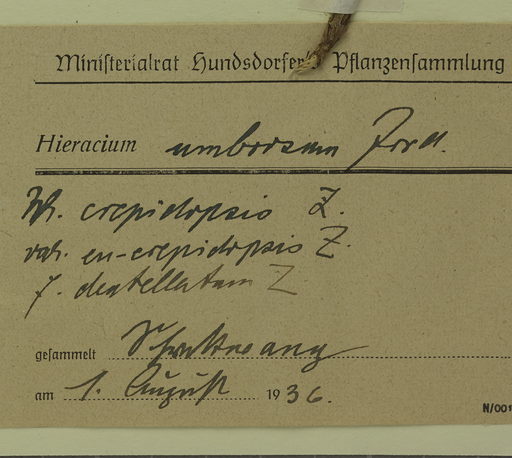 Ministerialrat Hundsdorfer's Pflanzensammlung
Hieracium umbrosum Jord.
crepidopsis Z.
var. eu-crepidopsis Z.
f. Z
gesammelt
am 1. August 1936.
N/001